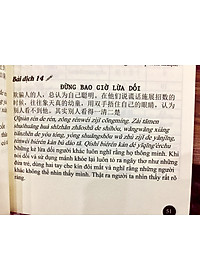 Bài dịch 14
ĐỪNG BAO GIỜ LỪA DỐI
欺骗人的人，总认为自己聪明。在他们说谎话施展招数的
时候，往往象天真的幼童，用双手捂住自己的眼睛，认为
别人看不到他。其实别人看得一清二楚
Qīpiàn rén de rén, zǒng rènwéi zìjǐ cōngmíng. Zài tāmen
shuōhuǎng huà shīzhǎn zhāoshù de shíhòu, wǎngwǎng xiàng
tiānzhēn de yòu tóng, yòng shuāngshǒu wǔ zhù zìjǐ de yǎnjīng,
rènwéi biérén kàn bù dào tā. Qíshí biérén kàn de yīqīng'èrchu
Những kẻ lừa dối người khác luôn nghĩ rằng họ thông minh. Khi
nói dối và sử dụng mánh khóe lại luôn tỏ ra ngây thơ như những
đứa trẻ, dùng hai tay che kín đôi mắt và nghĩ rằng những người
khác không thể nhìn thấy mình. Thật ra người ta nhìn thấy rất rõ
ràng.
51